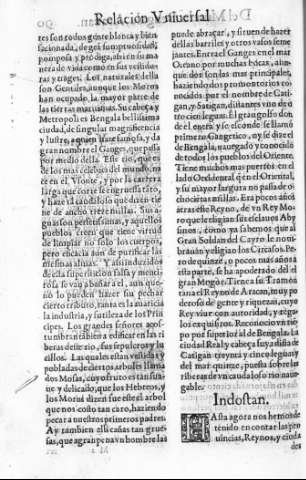 Relacion Vniuersal
tres son todos gente blanca y bien
sacionada, de gesto
pomposa y prodiga, assi en su ma
nera de viuir como en sus vestidu
ras y trages. Los naturales della
son Gentiles, aunque los Moros
han ocupado la mayor parte de
las tierras maritimas. Su cabeça y
Metropoli es Bengala bellissima
ciudad, de singular magnificencia
y lustre, a quien haze famosa, y de
gran nombre el Ganges, que passa
por medio della. Este rio, que es
de los mas celebres del mundo, na
ce en el y por la carrera
larga que corre se engruessa tato,
y haze tã caudaloso que dizen tie
ne de ancho treze millas. Su a
gua son y aquellos
pueblos creen que tiene virtud
de limpiar no solo los cuerpos,
pero eficacia aun de purificar las
mesmas almas. Y assi traidos
desta supersticion falsa y mentì
rosa se vã a bañar a el, aun que
no lo pueden hazer sin pechar
cierto tributo, tanta es la auaricia
la industria, y sutileza de los Prin
cipes. Los grandes señores acos-
tumbran tambien a edificar en las ri
beras deste rio, sus sepulcros y lu
zillos. Las quales estan vestidas y
pobladas de ciertos arboles llama
dos Mosas, cuyo fruto es tan sua-
ue y delicado, que los Hebreos, y
los Moros dizen fue este el arbol
que nos costo tan caro, haziendo
pecar a nuestros primeros padres.
Ay tambien alli cañas tan grue-
sas, que a gran pena vn hombre las
puede abraçar, y siruen de hazer
dellas barriles y otros vasos seme
jantes. Entra el Ganges en el mar
Oceano por muchas bocas, aun-
que dos son las mas principales,
haziendo dos promontorios co-
nocidos por el nombre de Catigan,
y Satigan, distantes vno de o
tro cien leguas. El gran golfo don
de el entra y se esconde se llamò
primero Gangetico, y oy se dize el
de Bengala, nauegado y conocido
de todos los pueblos del Oriente.
Tiene muchos mas puertos en el
lado Occidental que en el Oriental,
y su mayor largura no passa de o-
chocientas millas. Era pocos años
atras este Reyno, de vn Rey Mo
ro que elegian sus esclauos Aby
sinos, como ya sabemos que al
Gran Soldan del Cayro le nom-
brauan y elegian los Circasos. Pe
ro de quinze, o pocos mas años a
esta parte, se ha apoderado del el
gran Mogor. Tiene a su Tramon
tana el Reyno de Aracan, muy po
deroso de gente y riquezas, cuyo
Rey viue con autoridad, y rega-
los exquisitos. Reconocio vn tiẽ-
po por superior al de Bengala. La
ciudad Real y cabeça suya assista de
Catigan treynta y cinco leguas y
del mar quinze, puesta sobre las
riberas de vn caudaloso rio naue-
gable.
Indostan.
HAsta agora nos hemos de
tenido en contar las pro
uincias, Reynos, y ciuda
des